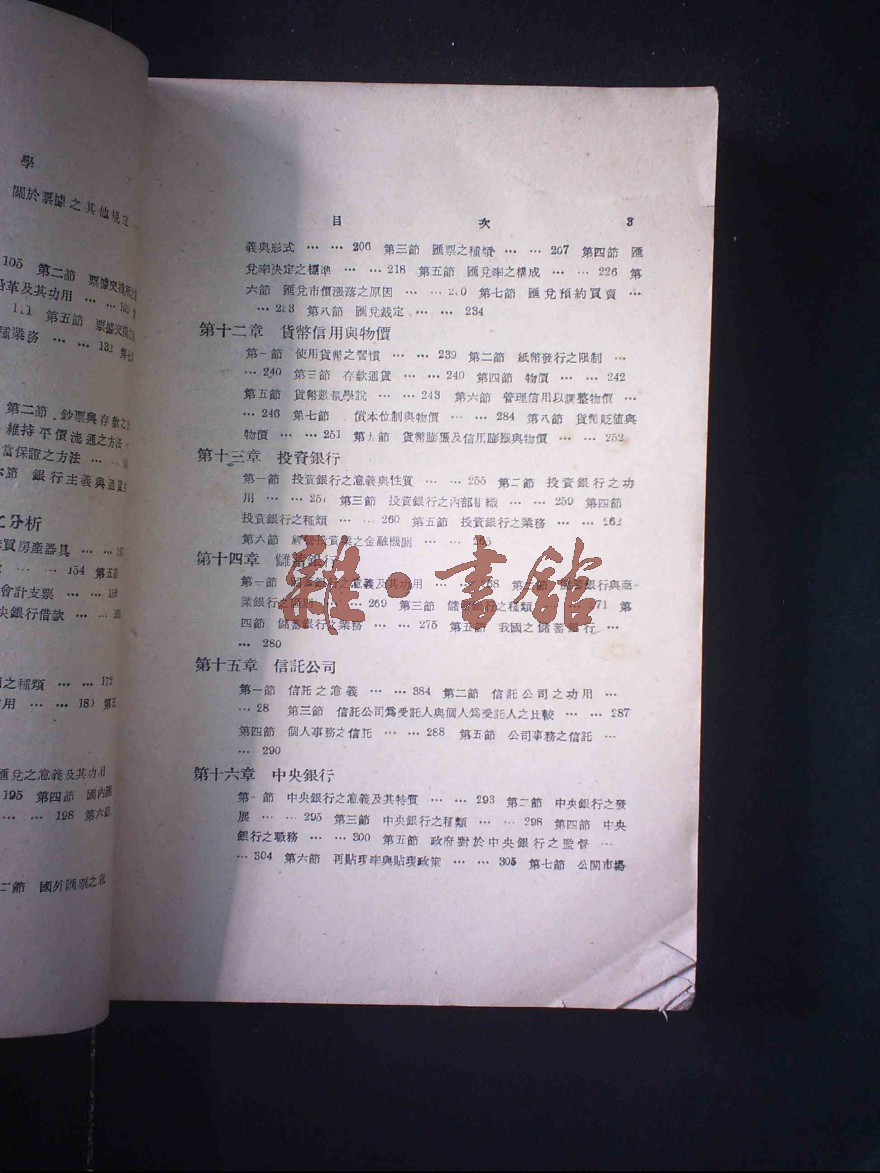 學
關於票據之其他規定
105 第二節 票據交換所之
沿革及其功用 … …
第五節 票據交換之
種業務 … … 132 第七
第二節 鈔票與存款之
維持平價流通之方法
當保證之方法 … …
六節 銀行主義與通貨主
之分析
買房產器具 … …
… 154 第五節
會計支票 … … 158
央銀行借款 … …
之種類 … … 172
用 … … 18) 第五
匯兌之意義及其功用
195 第四節 國內匯
… … 198 第六節
二節 國外匯票之意
目 次 3
義與形式 … … 206 第三節 匯票之種類 … … 207 第四節 匯
兌率決定之標準 … … 218 第五節 匯兌率之構成 … … 226 第
六節 匯兌市價漲落之原因 … … 2_0 第七節 匯兌預約買賣 …
… 233 第八節 匯兌裁定 … … 234
第十二章 貨幣信用與物價
第一節 使用貨幣之習慣 … … 239 第二節 紙幣發行之限制 …
… 240 第三節 存款通貨 … … 240 第四節 物價 … … 242
第五節 貨幣數量學說 … … 243 第六節 管理信用以調整物價 …
… 246 第七節 償本位制與物價 … … 284 第八節 貨幣貶值與
物價 … … 251 第九節 貨幣膨脹及信用膨脹與物價 … … 252
第十三章 投資銀行
第一節 投資銀行之意義與性質 … … 255 第二節 投資銀行之功
用 … … 257 第三節 投資銀行之內部組織 … … 259 第四節
投資銀行之種類 … … 260 第五節 投資銀行之業務 … … 262
第六節 經營投資業之金融機關 … … 265
第十四章 儲蓄銀行
第一節 儲蓄銀行之意義及其功用 … … 268 第二節 儲蓄銀行與商
業銀行之區別 … … 269 第三節 儲蓄銀行之種類 … … 271 第
四節 儲蓄銀行之業務 … … 275 第五節 我國之儲蓄銀行 …
… 280
第十五章 信託公司
第一節 信託之意義 … … 384 第二節 信託公司之功用 …
… 28 第三節 信託公司爲受託人與個人爲受託人之比較 … … 287
第四節 個人事務之信託 … … 288 第五節 公司事務之信託 …
… 290
第十六章 中央銀行
第一節 中央銀行之意義及其特質 … … 293 第二節 中央銀行之發
展 … … 295 第三節 中央銀行之種類 … … 298 第四節 中央
銀行之職務 … … 300 第五節 政府對於中央銀行之監督 …
… 304 第六節 再貼現率與貼現政策 … … 305 第七節 公開市場
雜·書館